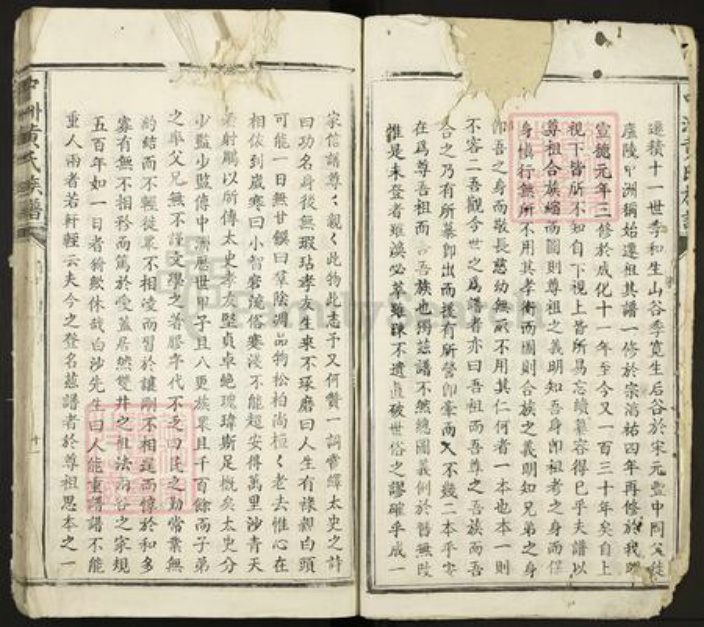 遷積十一世季和生山谷季寬生后谷於宋元豐中同父徙
廬陵中洲稱始遷祖其譜一修於宗淳祐四年再修於我
宣德元年三修於成化十一年至今又一百三十年矣自上
視下皆所不知自下視上皆所易忘續纂容得已乎夫譜以
尊祖合族縮而圖則尊祖之義明知吾身即祖考之身而保
身慎行無所不用其孝衡而圖則合族之義明知兄弟之身
即吾之身而敬長慈幼無所不用其仁何者一本也本一則
不容二吾觀今世之為譜者亦曰吾祖而吾尊之吾族而吾
合之乃有所纂即出而援有所勞即棄而又不幾二本乎安
在為尊吾祖而言吾族也獨茲譜不然總圖義例於舊無改
惟是未登者雖渙必萃雖疎不遺直破世俗之謬確乎成一
家信譜尊尊親親此物此志予又何贊一詞嘗繹太史之詩
曰功名身後無瑕玷孝友生來不琢磨曰人生有祿親白頭
可能一日無甘饌曰羣陰凋品物松柏尚桓桓老去惟心在
相依到歲寒曰小智窘淺俗寒淺不能超安得萬里沙青天
看射鵰以所傳太史孝友堅貞卓絶瑰瑋斯足概矣太史分
少監少監傳中洲歷世甲子且八更族眾且千百餘而子弟
之率父兄無不謹文學之著膠庠代不乏四民之勤常業無
約結而不輕徙眾不相凌而習於讓剛不相逞而惇於和多
寡有無不相矜而篤於愛蓋居然雙井之祖法兩谷之家規
五百年如一日者猗歟休哉白沙先生曰人能重譜譜不能
重人兩者若軒輊云夫今之登名茲譜者於尊祖思本之一
中州黃氏族譜